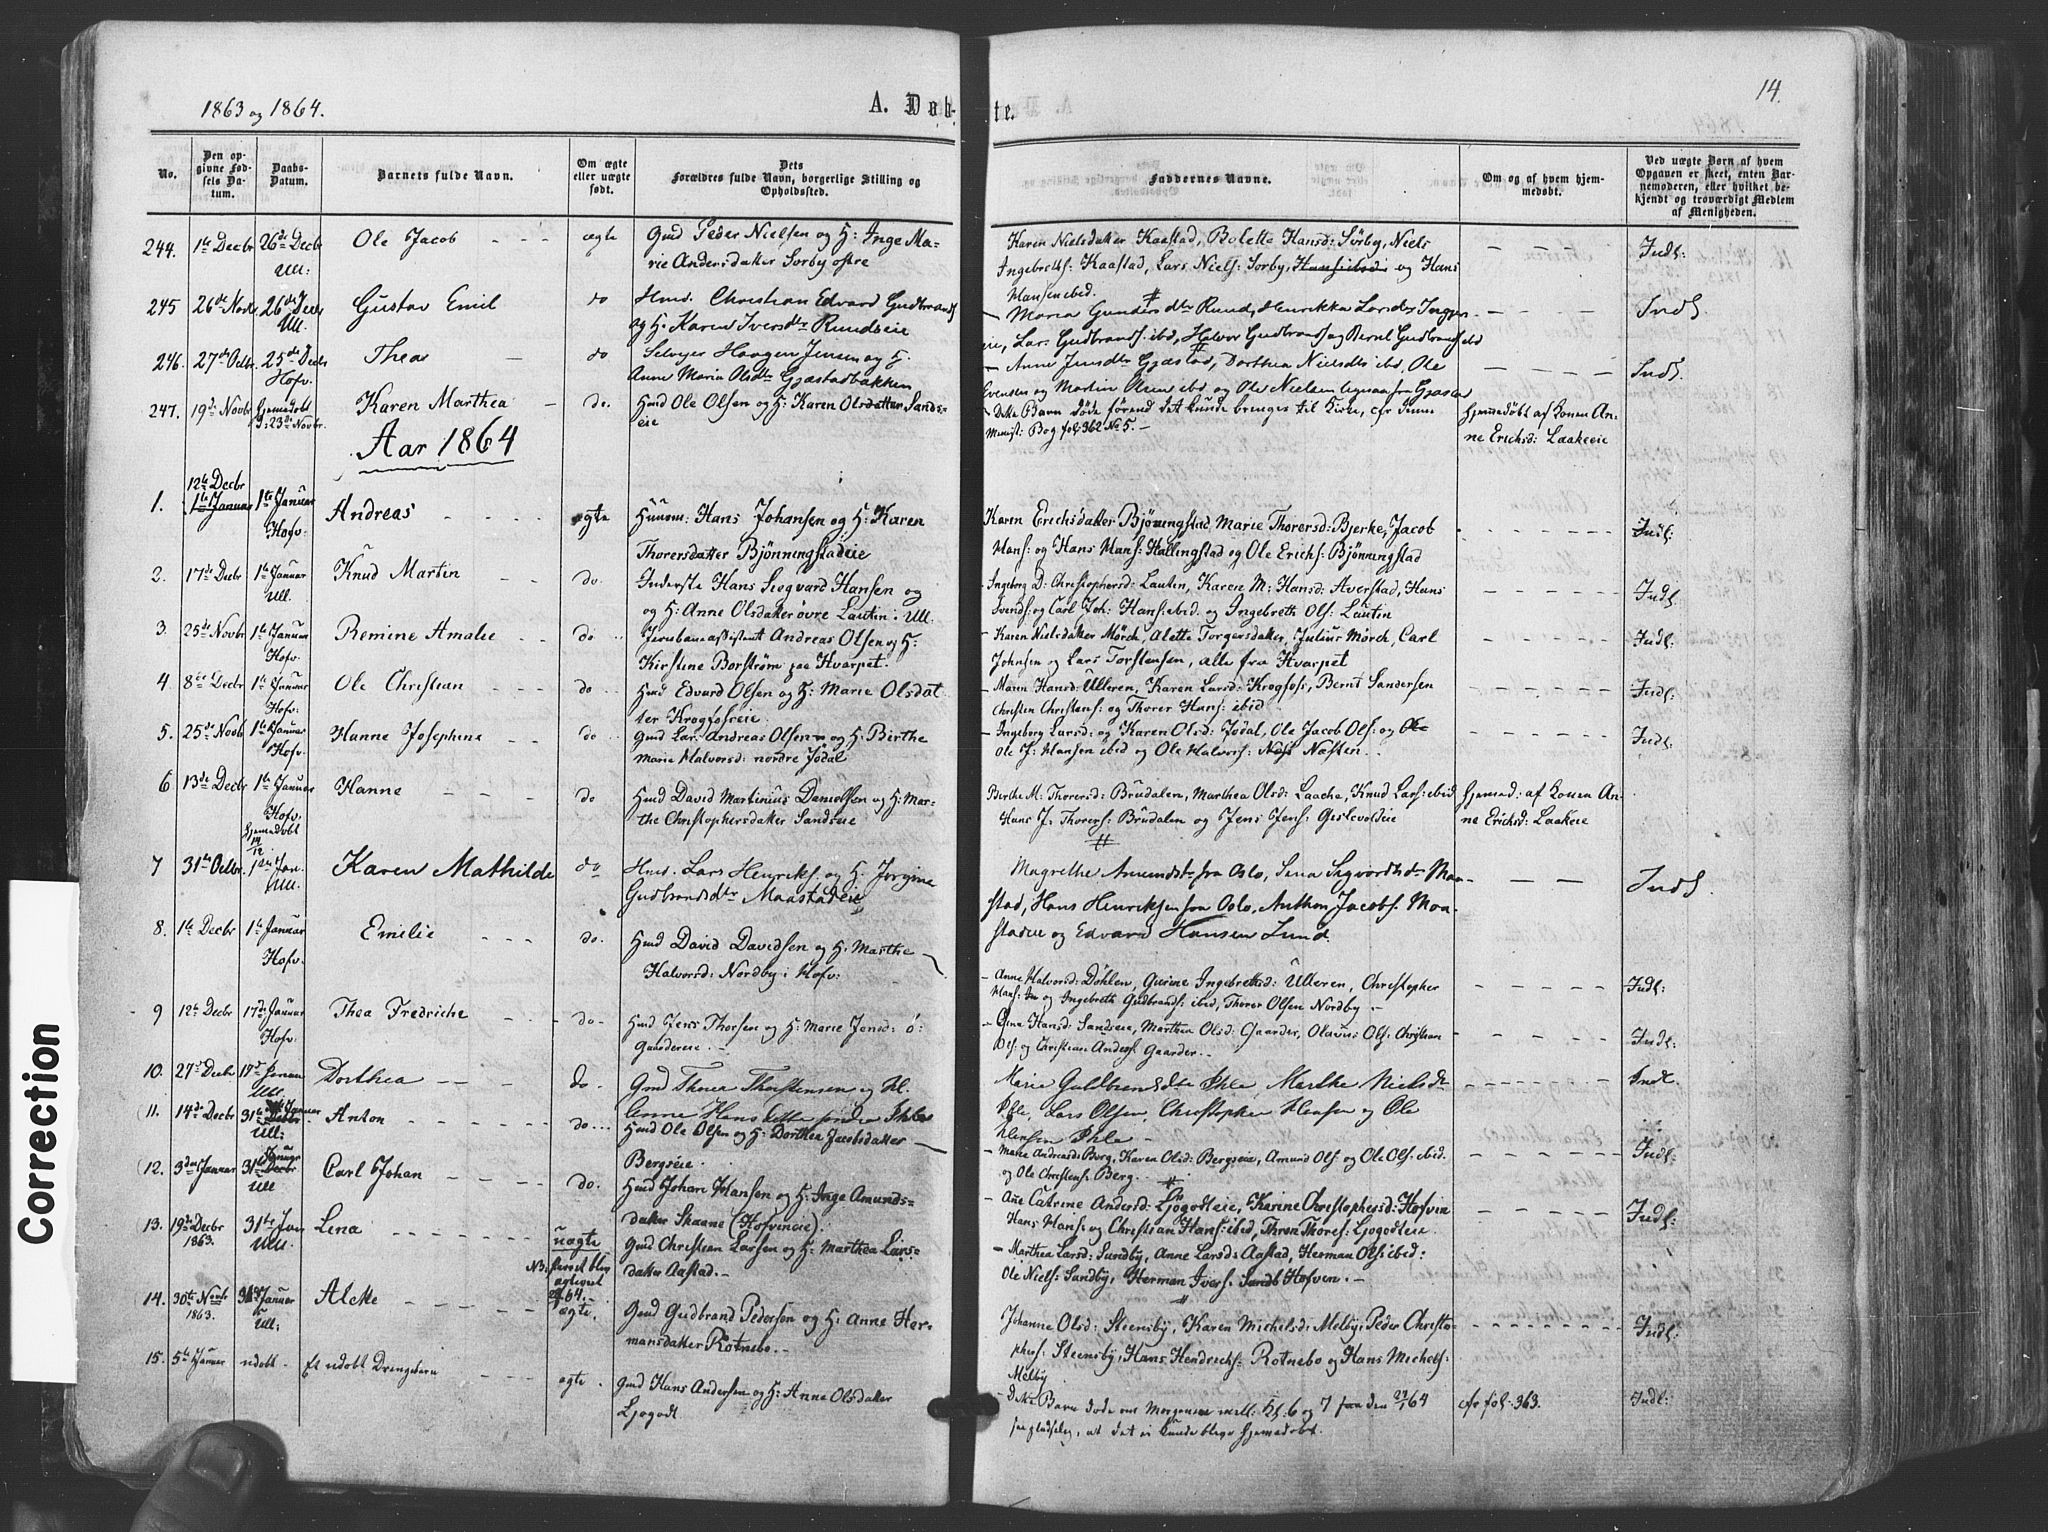 1863 og 1864.
A. Døbte.
14.
No.
Den opgivne Fødsels Datum.
Daabs-Datum.
Barnets fulde Navn.
Om ægte eller uægte født.
Dets Forældres fulde Navn, borgerlige Stilling og Opholdssted.
Faddernes Navne.
Om og af hvem hjemmedøbt.
Ved uægte Børn af hvem Opgaven er skeet, enten Barnemoderen, eller hvilket bekjendt og troværdigt Medlem af Menigheden.
244. 1ste Decbr 26de Decbr Ull: Ole Jacob ægte Gmd Peder Nielsen og H: Inge Ma-
rie Andersdatter Sørby østre
Karen Nielsdatter Kaastad, Bolette Hansd: Sørby, Niels
Ingebrets: Kaastad, Lars Niels: Sørby, og Hans
Hansen ibid. Indl:
245 26de Novbr 26de Decbr Ull. Gustav Emil do Hmd. Christian Edvard Gudbrands
og H: Karen Iversdtr Rundseie
Maria Gundersdtr Rund, Henrikka Larsdtr
eie, Lars Gudbrands ibd, Halvor Gudbrands og Bernt Gudbrands ibd Indl
246. 27de Octbr 25de Decbr Hofv. Thea do Selveier Haagen Jensen og H.
Anne Maria Olsdtr Gjæstadbakken
Anne Jensdtr Gjæstad, Dorthea Nielsdtr ibid, Ole
Evensen og Martin Olsen ibd og Ole Nielsen fra Gjæstad Indl.
247. 19de Novbr Hjemmedøbt D: 23de Novbr. Karen Marthea do. Hmd Ole Olsen og H: Karen Olsdatter Sands-
eie
Dette Barn døde førend det kunde bringes til Kirke, cfr denne
Minist: Bog fol: 362 No 5.
Hjemmedøbt af Konen An-
ne Erichsd: Laakeeie
Aar 1864
1. 12te Decbr 1ste Januar 1ste Januar Hofv: Andreas ægte Huusm: Hans Johansen og H: Karen
Thorersdatter Bjønningstadeie
Karen Erichsdatter Bjønningstad, Marie Thorersd: Bjerke, Jacob
Hans: og Hans Hans: Hallingstad og Ole Erichs: Bjønningstad Indl:
2. 17de Decbr 1ste Januar Ull. Knud Martin do. Inderste Hans Siegvard Hansen og
og H: Anne Olsdatter øvre Lautin i Ull.
Ingeborg D: Christophersd: Lautin, Karen M: Hansd: Averstad, Hans
Svends: og Carl Joh: Hans: ibid. og Ingebreth Ols: Lautin Indl:
3. 25de Novbr 1ste Januar Hofv. Remine Amalie do Jernbaneassistent Andreas Olsen og H:
Kirstine Borstrøm paa Hvarpet.
Karen Nielsdatter Mørch, Alette Torgersdatter, Julius Mørch, Carl
Johnsen og Lars Torstensen, alle fra Hvarpet Indl:
4. 8de Decbr 1ste Januar Hofv: Ole Christian do Hmd Edvard Olsen og H: Marie Olsdat-
ter Krogfoseie
Maren Hansd: Ulleren, Karen Larsd: Krogfoss, Bernt Sandersen
Christen Christens: og Thorer Hans: ibid Indl:
5. 25de Novb 1ste Januar Hofv: Hanne Josephine do Gmd Lars Andreas Olsen og H: Birthe
Marie Halvorsd: nordre Jødal
Ingeborg Larsd: og Karen Olsd: Jødal, Ole Jacob Ols: og Ole
Ole Hansen ibid og Ole Halvors: Næs Næsten Indl:
6 13de Decbr 1ste Januar Hofv. Hjemmedøbt 14/12 Hanne do Hmd David Martinius Danielsen og H: Mar-
the Christophersdatter Sandseie
Berthe M. Thorersd: Brudalen, Marthea Olsd: Laache, Knud Lars: ibid
Hans J. Thorers: Brudalen og Jens Jens: Gislevoldeie
Hjemmed: af Konen An-
ne Erichsd: Laakeeie
7 31te Octbr. 1ste Jan. Ull. Karen Mathilde do Hmd. Lars Henriks. og H. Jørgine
Gudbrandsdtr Maastadeie
Magrethe Amundsdtr fra Oslo, Sena Sigvordtsdtr Maa-
stad, Hans Henriksen fra Oslo, Anthon Jacobs. Maa-
stadeie og Edvard Hansen Lund. Indl.
8. 1ste Decbr 1ste Januar Hofv: Emilie do. Hmd David Davidsen og H: Marthe
Halvorsd: Nordby i Hofv:
Anne Halvorsd: Døhlen, Gurine Ingebretsd: Ulleren, Christopher
Hans: og Ingebreth Gudbrands: ibid, Thorer Olsen Nordby Indl:
9 12te Decbr 17de Januar Hofv: Thea Fredriche do Hmd Jens Thorsen og H: Marie Jensd: ø:
Gaardereie.
Hansd: Sandseie, Marthea Olsd: Gaarder, Olavus Ols: Christian
Ols: og Christian Anders: Gaarder. Indl:
10. 27de Decbr 17de Januar Ull Dorthea do. Gmd Thorer Thorstensen og H.
Anne Hansdatter søndre Ihle
Marie Guldbrandsdtr Ihle Marthe Nielsdtr
Ihle, Lars Olsen, Christopher Hensen og Ole
Hensen Ihle Indl.
11. 14de Decbr 31te Januar Ull: Anton do Hmd Ole Olsen og H: Dorthea Jacobsdatter
Bergseie.
Marie Andreasd: Berg, Karen Olsd: Bergseie, Amund Ols: og Ole Ols: ibid.
og Ole Christens: Berg. Indl:
12. 3die Januar 31te Januar Ull Carl Johan do. Hmd Johan Hansen og H: Inge Amunds-
datter Skaane (Hofvineie).
Ane Catrine Andersd: Ljogodteie, Karine Christophersd: Hofvin
Hans Hans: og Christian Hans: ibid, Thron Thores: Ljogodteie Indl:
13. 19de Decbr 1863. 31te Jan Ull. Lena uægte
NB: ægteviet 64. Gmd Christian Larsen og H: Marthea Lars-
datter Aastad.
Marthea Larsd: Sundby, Anne Larsd: Aastad, Herman Ols: ibid:
Ole Niels: Sundby, Herman Ivers: Hofven.
14. 30te Novbr 1863. 31te Januar Ull: Alette ægte. Gmd Gudbrand Pedersen og H: Anne Her-
mansdatter Rotnebo.
Johanne Olsd: Steensby, Karen Michelsd: Melby, Peder Christo-
phers: Steensby, Hans Hendrichs: Rotnebo og Hans Michels:
Melby Indl:
15. 5te Januar udøbt Et udøbt Drengebarn ægte. Gmd Hans Andersen og H: Anne Olsdatter
Ljogodt
Dette Barn døde om Morgenen mell: Kl: 6 og 7
at det ei kunde blive hjemmedøbt.
cfr fol. 363. Indl:
Correction